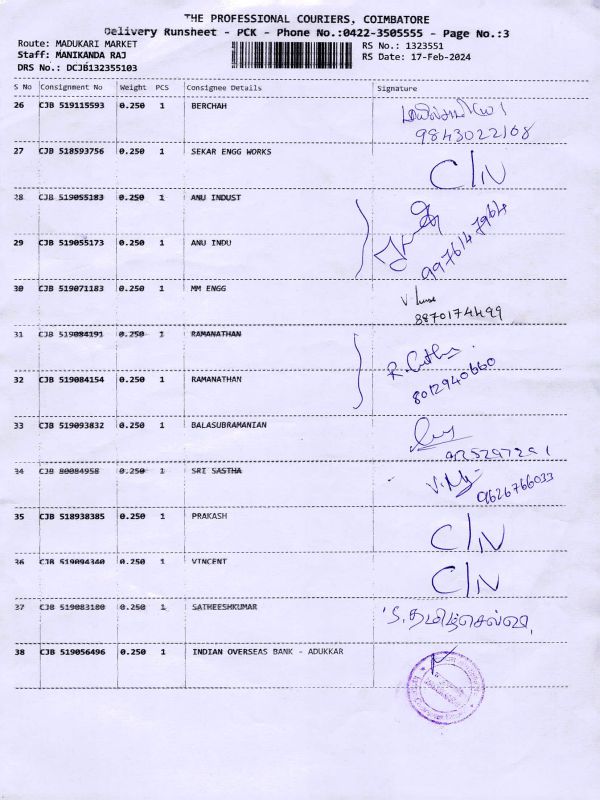 THE PROFESSIONAL COURIERS, COIMBATORE
Delivery Runsheet - PCK - Phone No.:0422-3505555 - Page No.:3
Route: MADUKARI MARKET
RS No.: 1323551
Staff: MANIKANDA RAJ
RS Date: 17-Feb-2024
DRS No.: DCJB132355103
S No Consignment No Weight PCS Consignee Details Signature
26 CJB 519115593 0.250 1 BERCHAH
9843022168
27 CJB 518593756 0.250 1 SEKAR ENGG WORKS C/N
28 CJB 519055183 0.250 1 ANU INDUST
29 CJB 519055173 0.250 1 ANU INDU
9976147964
30 CJB 519071183 0.250 1 MM ENGG
8870174499
31 CJB 519084191 0.250 1 RAMANATHAN
32 CJB 519084154 0.250 1 RAMANATHAN
8012940660
33 CJB 519093832 0.250 1 BALASUBRAMANIAN
34 CJB 80084958 0.250 1 SRI SASTHA
9626766033
35 CJB 518938385 0.250 1 PRAKASH C/N
36 CJB 519094340 0.250 1 VINCENT C/N
37 CJB 519083180 0.250 1 SATHEESHKUMAR S. தமிழ்செல்வி
38 CJB 519056496 0.250 1 INDIAN OVERSEAS BANK - ADUKKAR